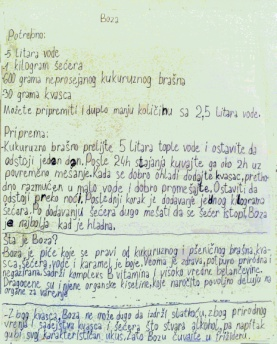 Boza
Potrebno:
5 litara vode
1 kilogram šećera
600 grama neprosejanog kukuruznog brašna
30 grama kvasca
Možete pripremiti i duplo manju količinu sa 2,5 litara vode.
Priprema:
Kukuruzno brašno prelijte 5 litara tople vode i ostavite da
odstoji jedan dan. Posle 24h stajanja kuvajte ga oko 2h uz
povremeno mešanje. Kada se dobro ohladi dodajte kvasac, pretho-
dno razmućen u malo vode i dobro promešajte. Ostaviti da
odstoji preko noći. Poslednji korak je dodavanje jednog kilograma
šećera. Po dodavanju šećera dugo mešati da se šećer istopi. Boza
je najbolja kad je hladna.
Šta je Boza?
Boza je piće koje se pravi od kukuruznog i pšeničnog brašna, kva-
sca, šećera, vode i karamel je boje. Veoma je zdrava, potpuno prirodna i
negazirana. Sadrži kompleks B vitamina i visoko vredne belančevine.
Dragocene su i njene organske kiseline, koje naročito povoljno deluju na
organe za varenje
-Zbog kvasca, Boza ne može dugo da izdrži slatkoću, zbog prirodnog
vrenja i sadejstva kvasca i šećera što stvara alkohol, pa napitak
gubi svoj karakterističan ukus, zato Bozu čuvajte u frižideru.